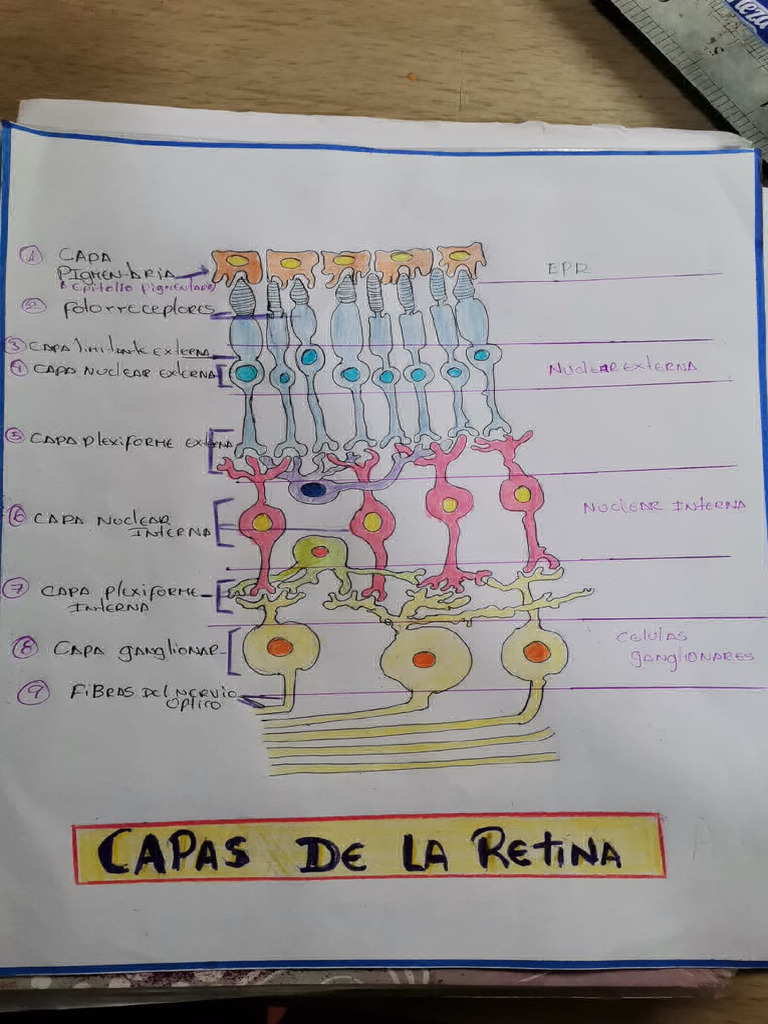 ① CAPA
PIGMENTARIA
EPR
② FOTORRECEPTORES
③ CAPA limitante externa
④ CAPA NUCLEAR EXTERNA
NUCLEAR EXTERNA
⑤ CAPA PLEXIFORME EXTERNA
⑥ CAPA NUCLEAR
INTERNA
NUCLEAR INTERNA
⑦ CAPA PLEXIFORME
INTERNA
⑧ CAPA GANGLIONAR
CELULAS
GANGLIONARES
⑨ FIBRAS DEL NERVIO
OPTICO
CAPAS DE LA RETINA